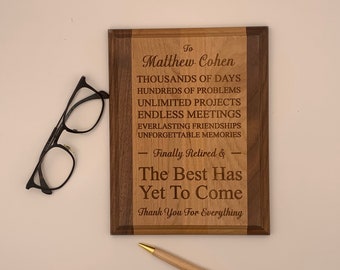 To
Matthew Cohen
THOUSANDS OF DAYS
HUNDREDS OF PROBLEMS
UNLIMITED PROJECTS
ENDLESS MEETINGS
EVERLASTING FRIENDSHIPS
UNFORGETTABLE MEMORIES
— Finally Retired & —
The Best Has
Yet To Come
Thank You For Everything